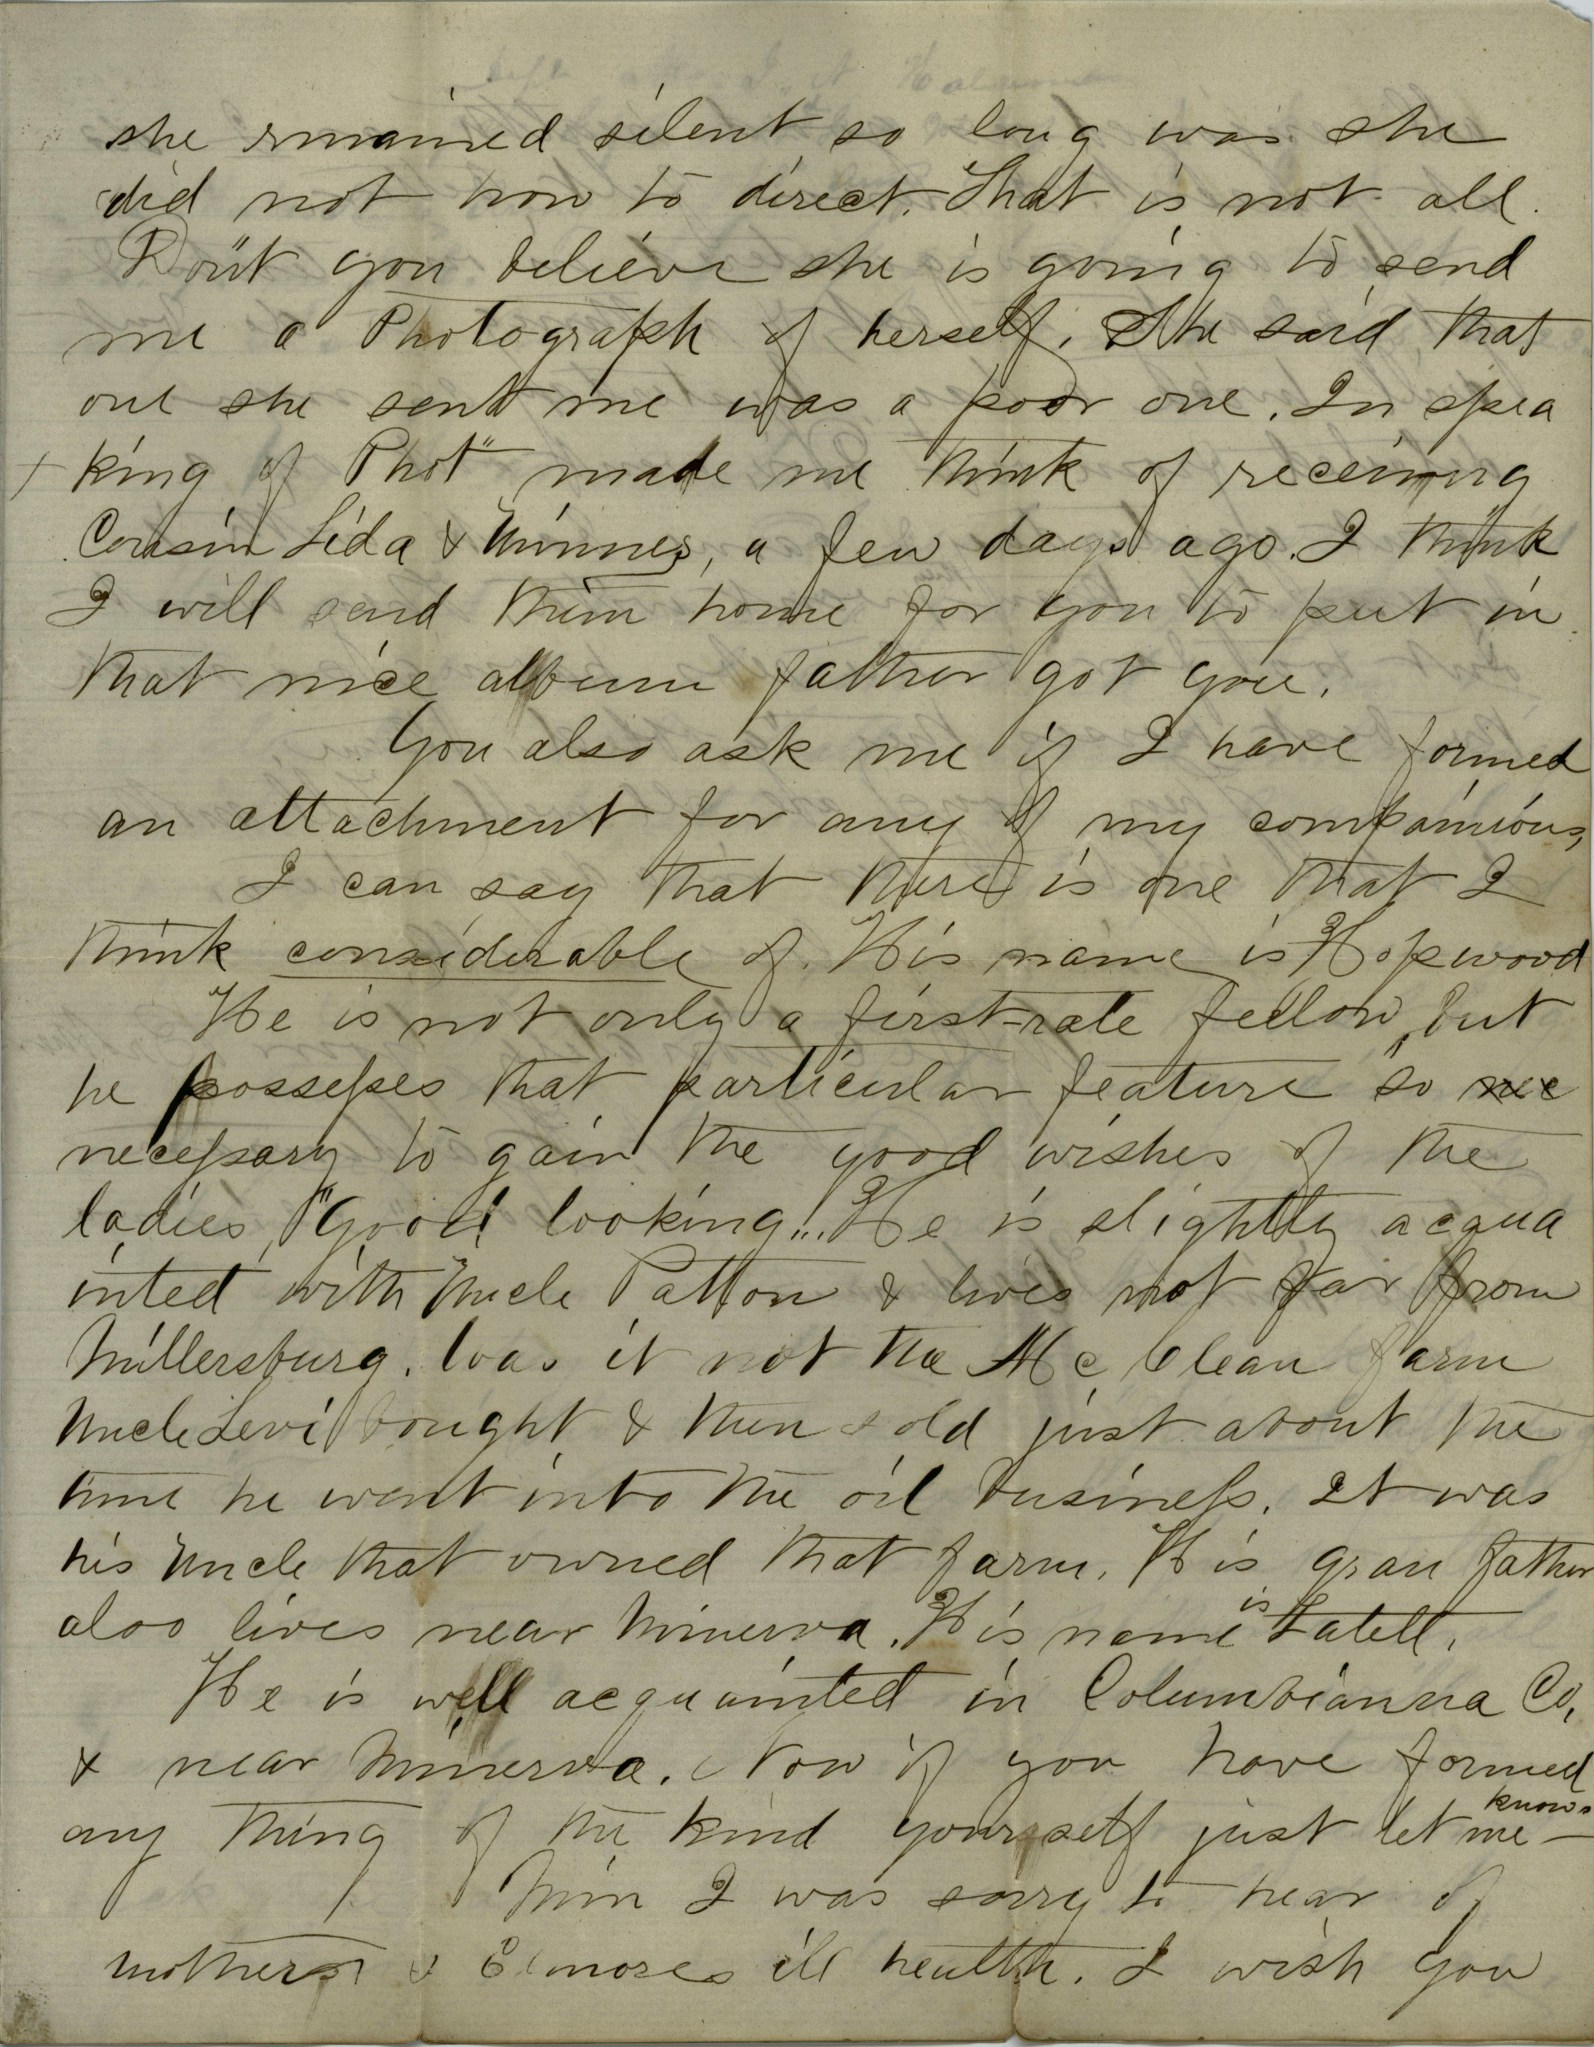 she rmained silent so long was she
did not how to direct. That is not all.
Don't you believe she is going to send
me a Photograph of herself. She said that
one she sent me was a poor one. In spea
king of Phot" made me think of receiving
Cousin Lida & Minnes, a few days ago. I think
I will send them home for you to put in
that nice album father got you.
You also ask me if I have formed
an attachment for any of my companions,
I can say that there is one that I
think considerable of. His name is Hopwood
He is not only a first-rate fellow, but
he possesses that particular feature so nec
necessary to gain the good wishes of the
ladies, "Good looking". He is slightly acqua
inted with Uncle Patton & lives not far from
Millersburg. Was it not the McClean farm
Uncle Levi bought & then sold just about the
time he went into the oil business. It was
his Uncle that owned that farm. His gran father
also lives near Minerva. His name is Latell.
He is well acquainted in Columbianna Co,
& near Minerva. Now if you have formed
any thing of the kind yourself just let me know -
Min I was sorry to hear of
mothers & Elmores ill health. I wish you